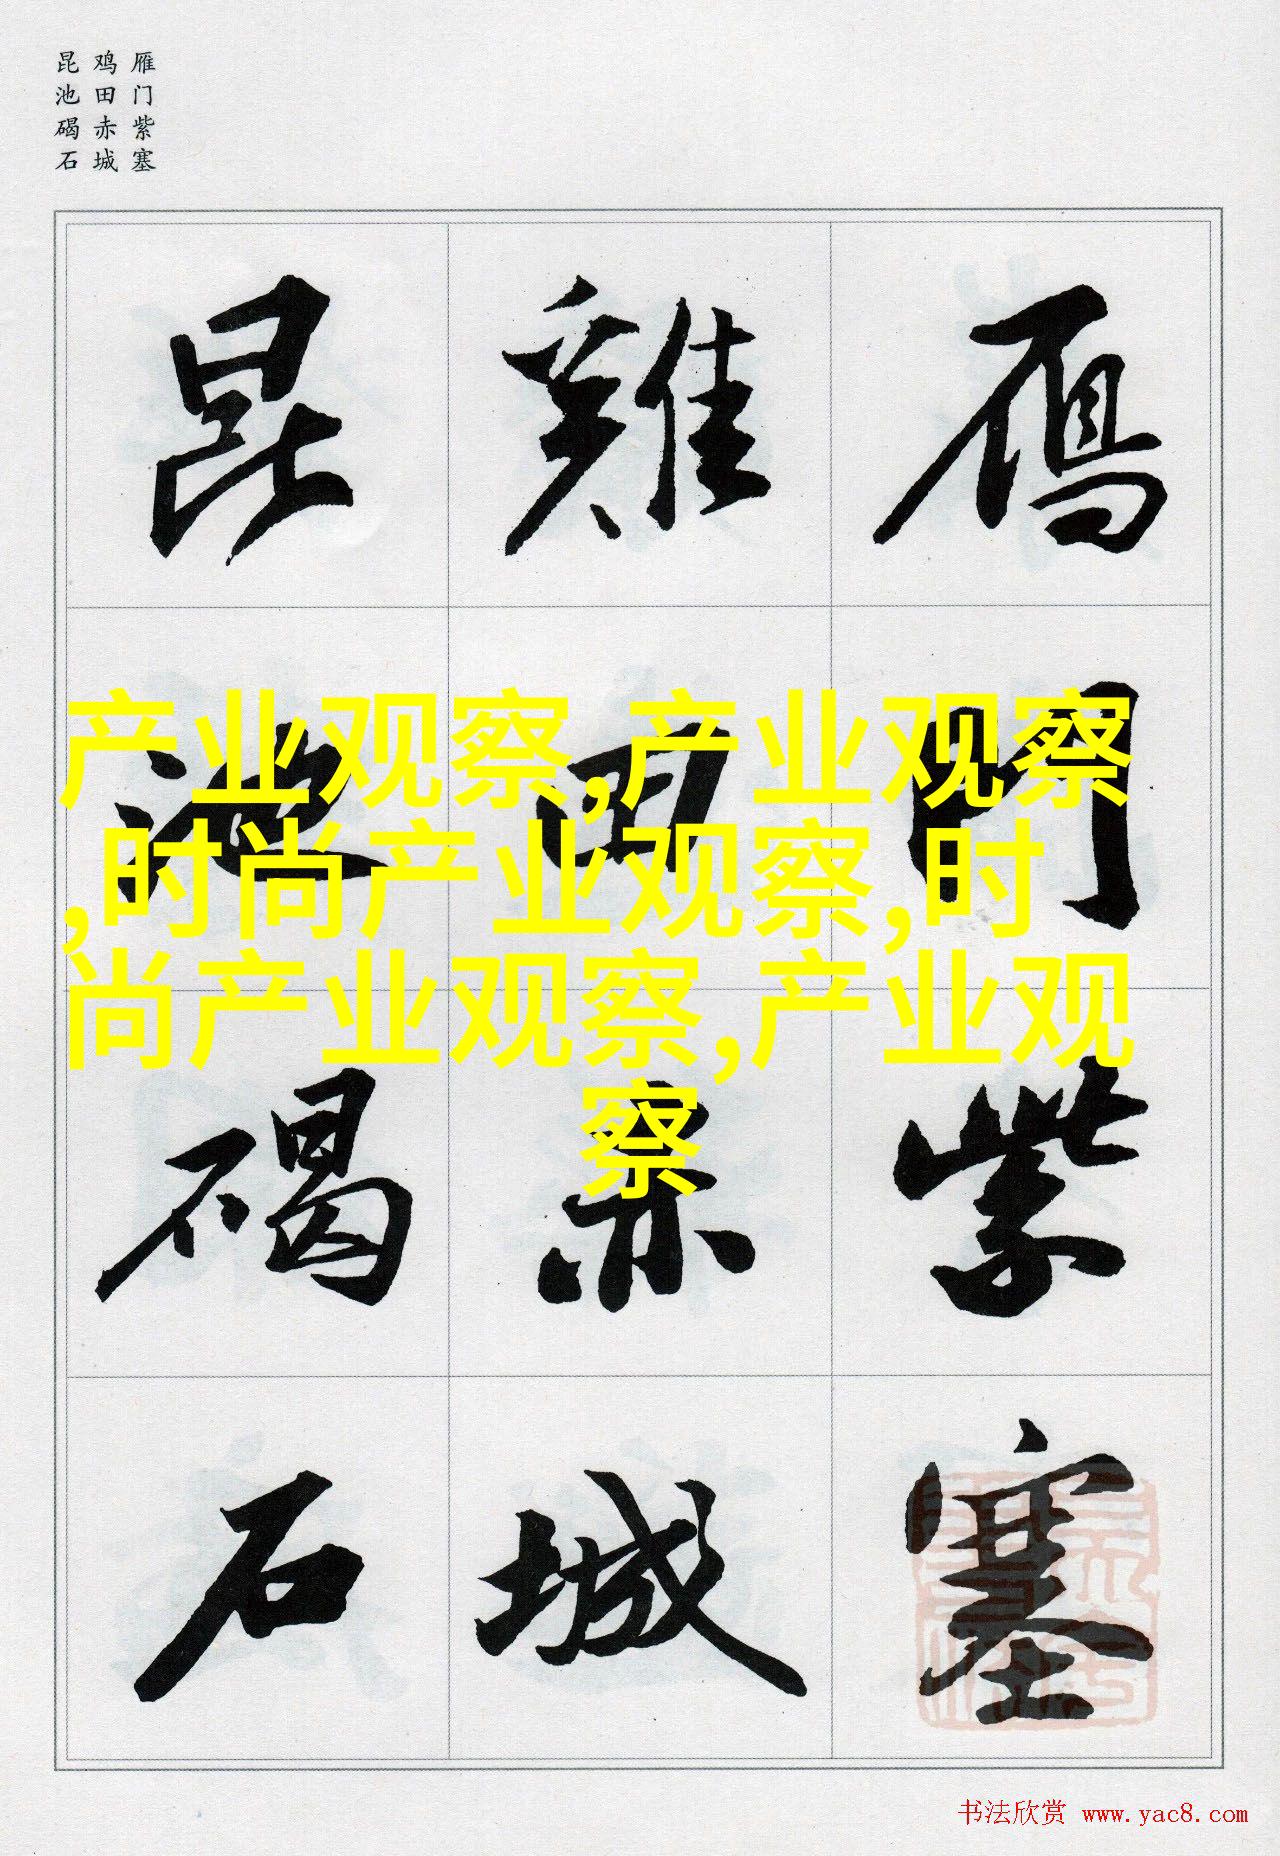 雁门紫塞
鸡田赤城
昆池碣石
鴈門紫塞
雞田赤城
昆池碣石
产业观察,产业观察
,时尚产业观察,时
尚产业观察,产业观
察
书法欣赏 www.yac8.com